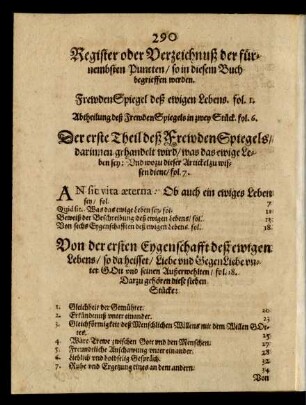 290
Register oder Verzeichnuß der für-
nembsten Puncten / so in diesem Buch
begrieffen werden.
Frewden Spiegel deß ewigen Lebens. fol. 1.
Abtheilung deß Frewden Spiegels in zwey Stück. fol. 6.
Der erste Theil deß Frewden Spiegels /
darinnen gehandelt wird / was das ewige Le-
ben sey: Und wozu dieser Artickel zu wis-
sen diene / fol. 7.
AN sit vita æterna: Ob auch ein ewiges Leben
sey / fol. 7
Quid sit. Was das ewige Leben sey / fol. 11
Beweiß der Beschreibung deß ewigen Lebens / fol. 13
Von sechs Eygenschafften deß ewigen Lebens. fol. 18
Von der ersten Eygenschafft deß ewigen
Lebens / so da heisset / Liebe vnd Gegen Liebe vn-
ter GOtt vnd seinen Außerwehlten / fol. 18.
Darzu gehören diese sieben
Stücke:
1. Gleichheit der Gemühter. 20
2. Erkändtnuß vnter einander. 23
3. Gleichförmigkeit deß Menschlichen Willens mit dem Willen GOt-
tes. 25
4. Ware Trewe zwischen Gott vnd den Menschen. 27
5. Freundtliche Anschawung vnter einander.
6. Lieblich vnd holdselig Gespräch.
7. Ruhe vnd Ergetzung eines an dem andern. 34
Von